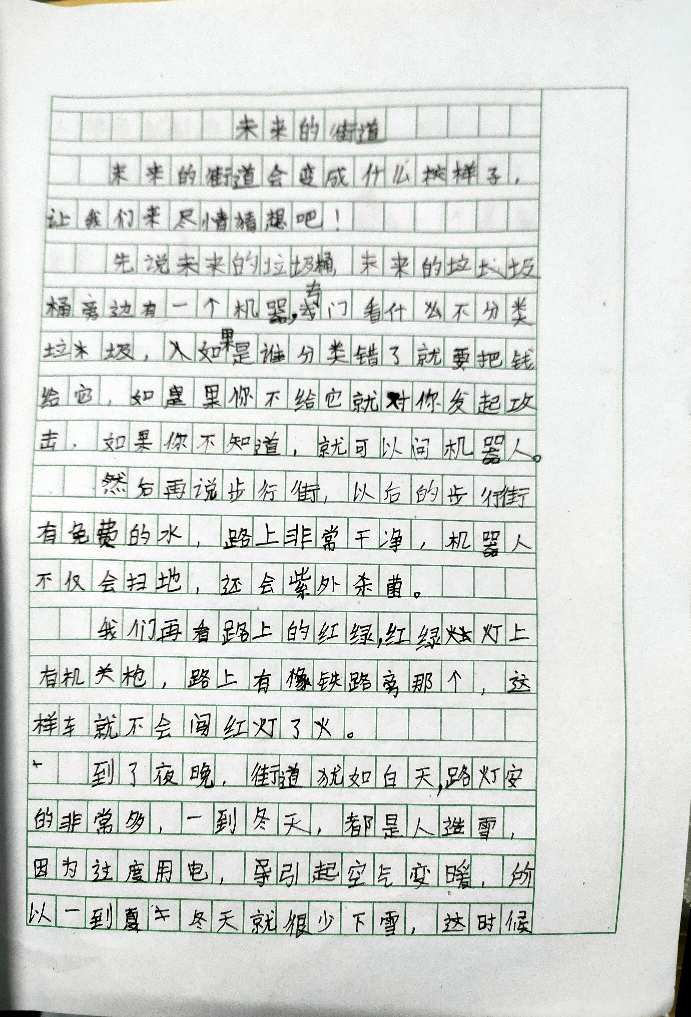 未来的街道
未来的街道会变成什么样子，
让我们来尽情猜想吧！
先说未来的垃圾桶，未来的垃圾
桶旁边有一个机器，专门看什么不分类
垃圾，如果是谁分类错了就要把钱
给它，如果你不给它就对你发起攻
击．如果你不知道，就可以问机器人。
然后再说步行街，以后的步行街
有免费的水，路上非常干净，机器人
不仅会扫地，还会紫外杀菌。
我们再看路上的红绿，红绿灯上
有机关枪，路上有像铁路旁那个，这
样车就不会闯红灯了。
到了夜晚，街道犹如白天，路灯安
的非常多，一到冬天，都是人造雪，
因为过度用电，导引起空气变暖，所
以一到冬天就很少下雪，这时候